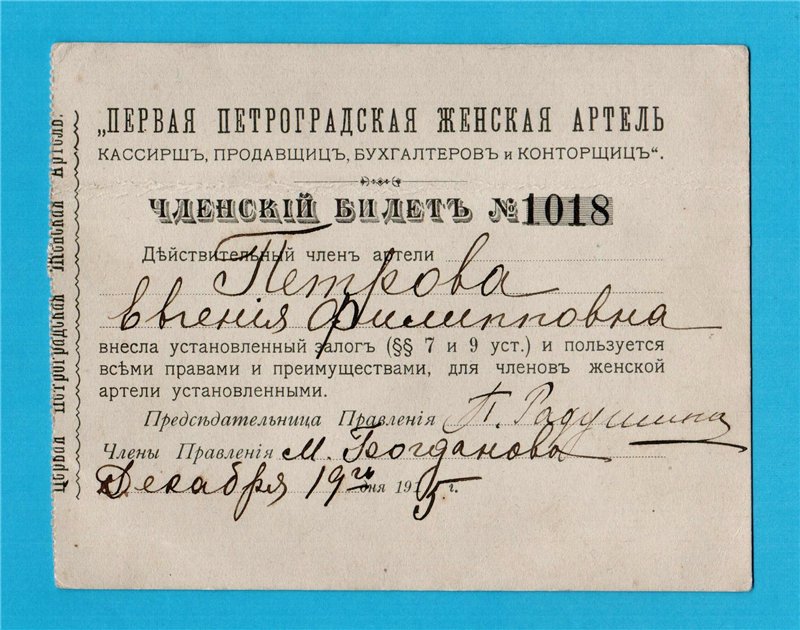 „ПЕРВАЯ ПЕТРОГРАДСКАЯ ЖЕНСКАЯ АРТЕЛЬ
КАССИРШЪ, ПРОДАВЩИЦЪ, БУХГАЛТЕРОВЪ и КОНТОРЩИЦЪ“.
ЧЛЕНСКІЙ БИЛЕТЪ № 1018
Дѣйствительный членъ артели
Петрова
Евгенія Филипповна
внесла установленный залогъ (§§ 7 и 9 уст.) и пользуется
всѣми правами и преимуществами, для членовъ женской
артели установленными.
Предсѣдательница Правленія П. Радушина
Члены Правленія М. Богданова
Декабря 19го дня 1915 г.
Первая Петроградская Женская Артель.